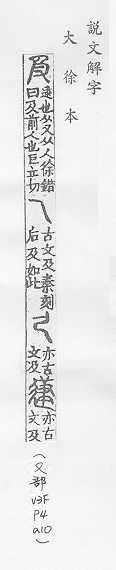 說文解字
大徐本
及
逮也从又从人徐鍇
曰及前人也巨立切
乁
古文及秦刻
石及如此
亦古
文及
亦古
文及
（又部 V3F P4 a10）